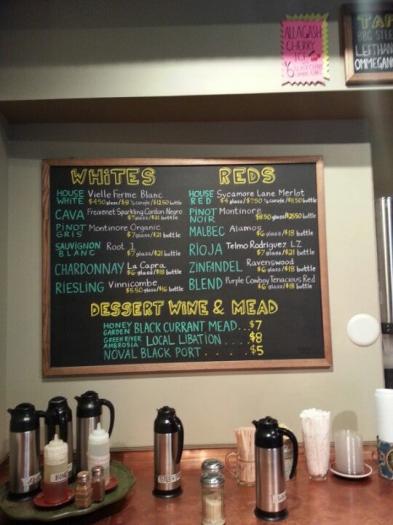 ALLAGASH
CHERRY
TAP
BBQ STEE
LEFTHAN
OMMEGANG
WHITES
HOUSE WHITE Vielle Ferme Blanc
$4.50 glass/$8 ½ carafe/$12.50 bottle
CAVA Freixenet Sparkling Cordon Negro
$7 glass/$21 bottle
PINOT GRIS Montinore Organic
$7 glass/$21 bottle
SAUVIGNON BLANC Root 1
$7 glass/$21 bottle
CHARDONNAY La Capra
$6 glass/$18 bottle
RIESLING Vinnicombe
$5.50 glass/$16 bottle
REDS
HOUSE RED Sycamore Lane Merlot
$4 glass/$7.50 ½ carafe/$11.50 bottle
PINOT NOIR Montinore
$8.50 glass/$25.50 bottle
MALBEC Alamos
$6 glass/$18 bottle
RIOJA Telmo Rodriguez LZ
$7 glass/$21 bottle
ZINFANDEL Ravenswood
$6 glass/$18 bottle
BLEND Purple Cowboy Tenacious Red
$6 glass/$18 bottle
DESSERT WINE & MEAD
HONEY GARDEN BLACK CURRANT MEAD...$7
GREEN RIVER AMBROSIA LOCAL LIBATION....$8
NOVAL BLACK PORT.....$5